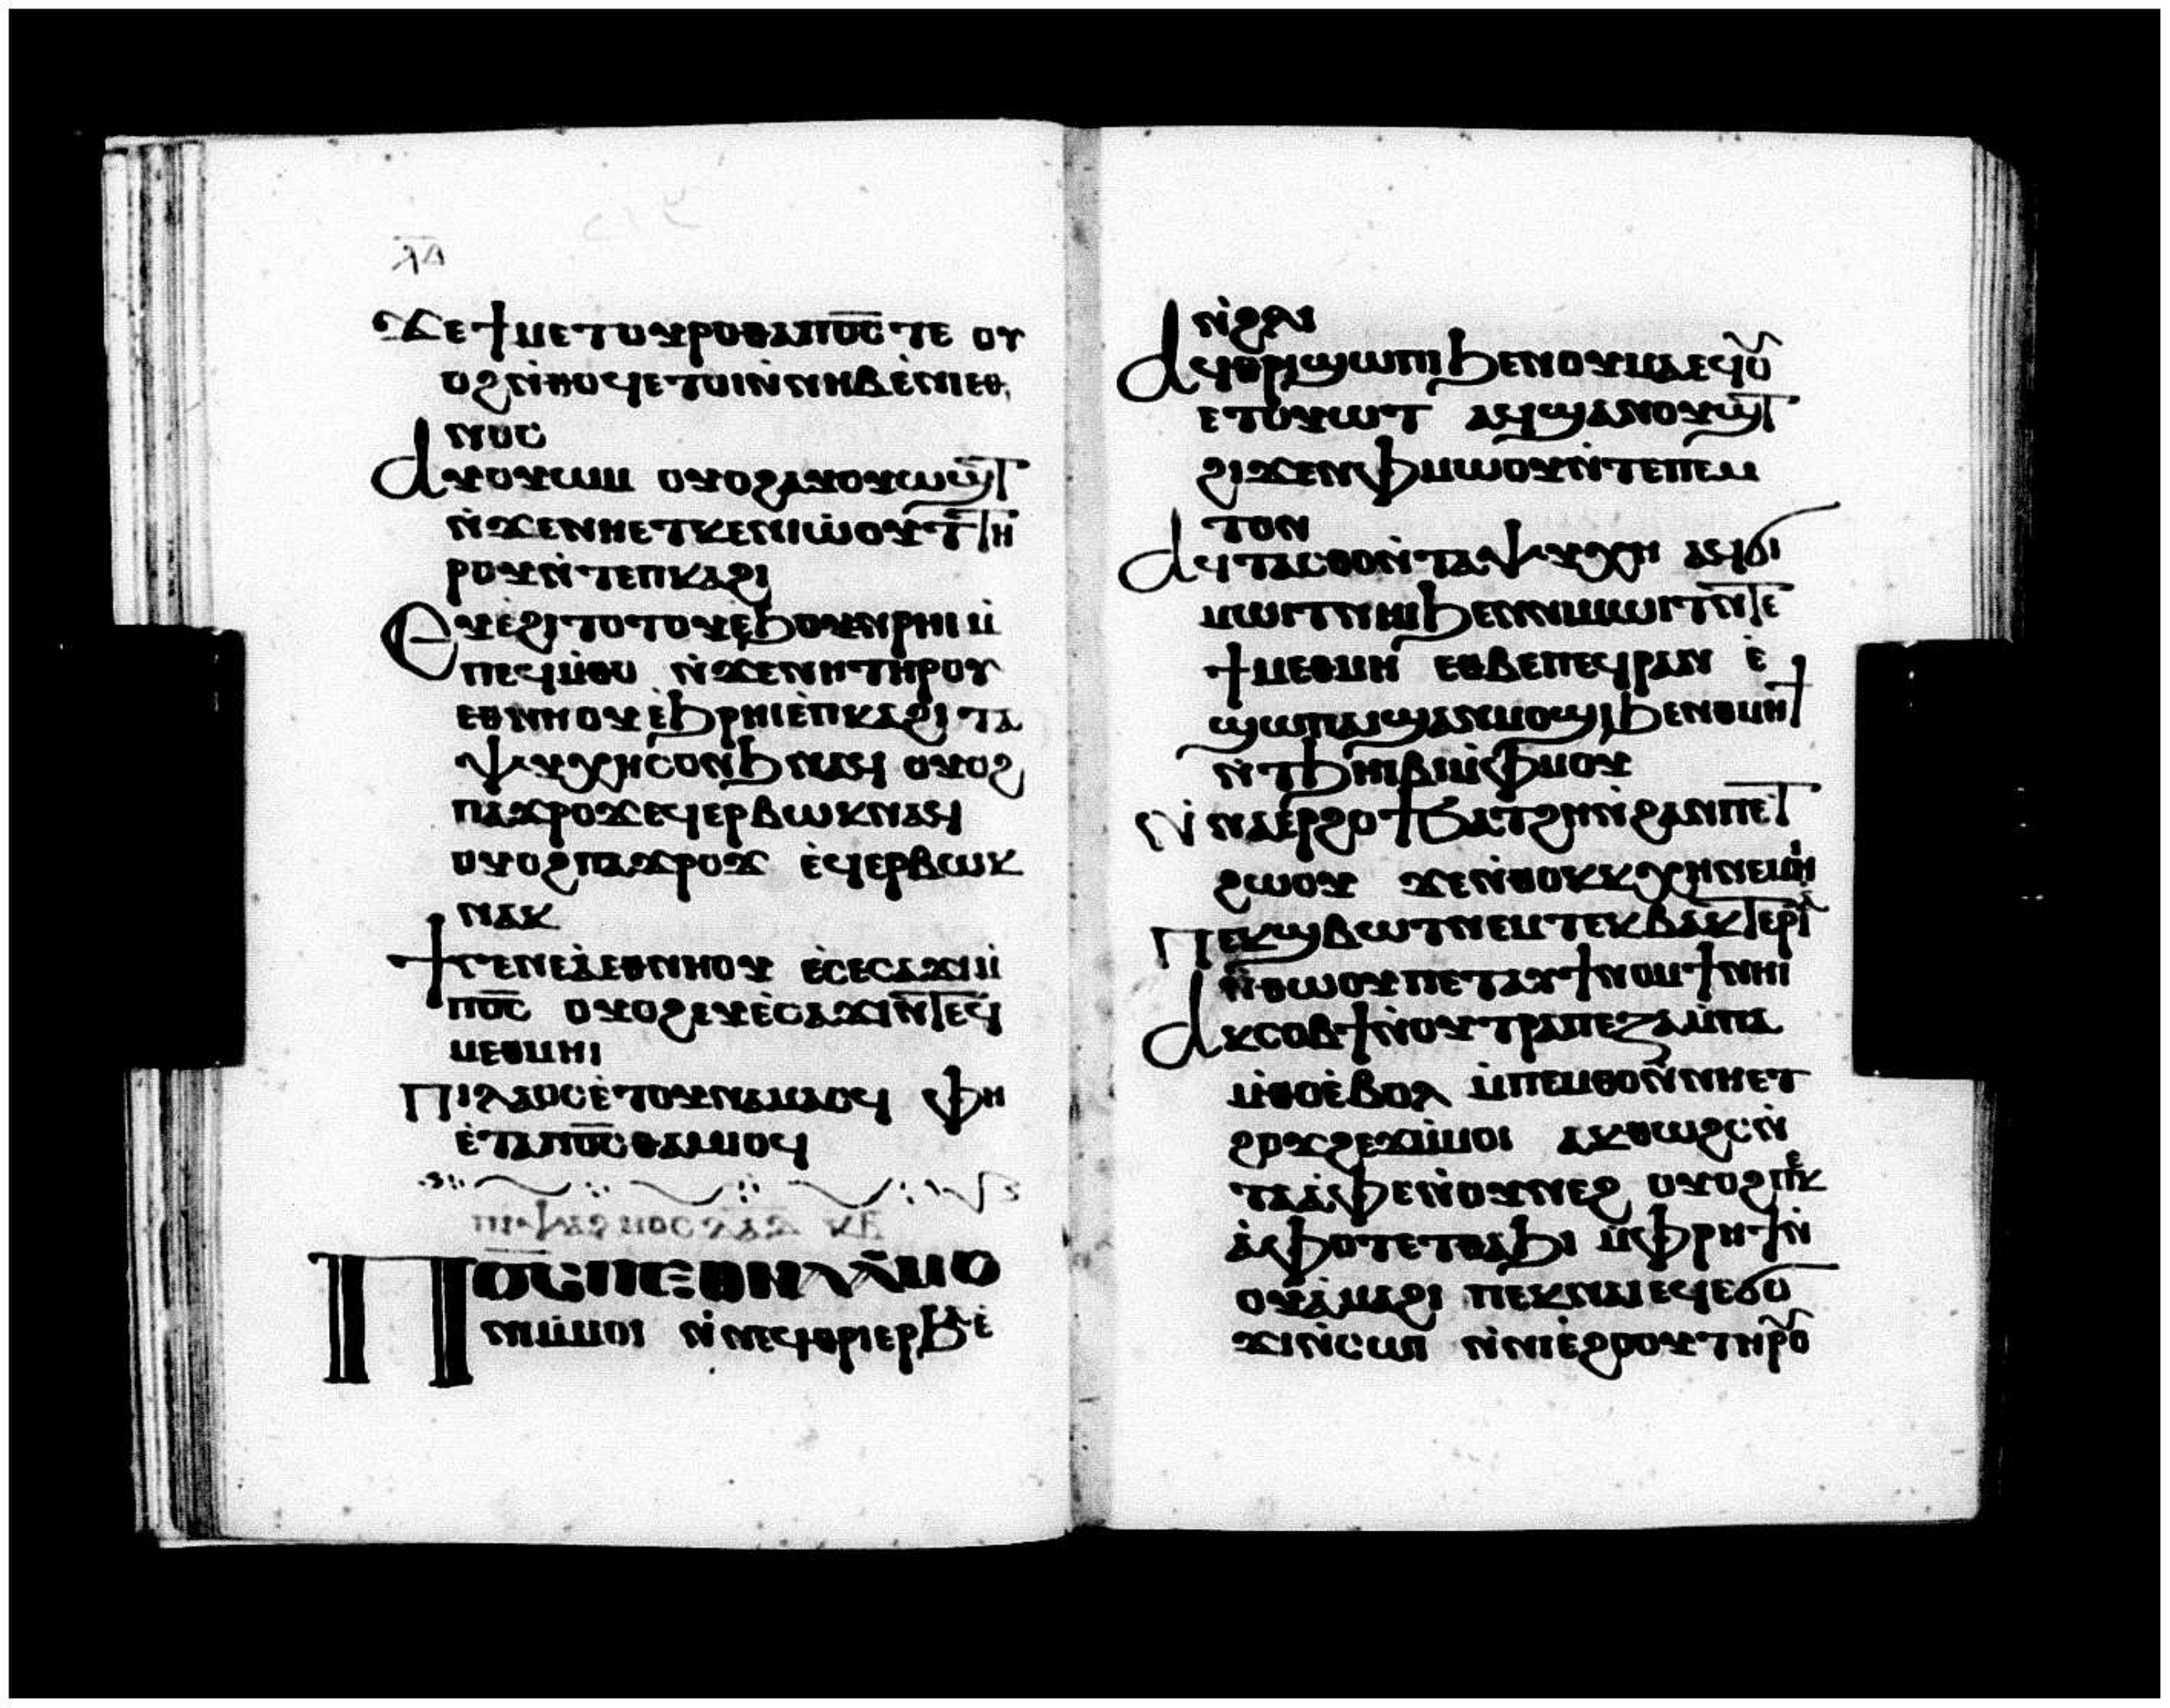 ⲗⲇ
ϫⲉϯⲙⲉⲧⲟⲩⲣⲟⲑⲁⲡⲟ̅ⲥ̅ⲧⲉ ⲟⲩ
ⲟϩⲛ̀ⲑⲟϥⲉⲧⲟⲓⲛ̀ⲛⲏⲃⲉ̀ⲛⲓⲉⲑ
ⲛⲟⲥ
ⲁⲩⲟⲩⲱⲙ ⲟⲩⲟϩⲁⲩⲟⲩⲱϣⲧ
ⲛ̀ϫⲉⲛⲏⲉⲧⲕⲉⲛⲓⲱ̀ⲟⲩⲧⲏ
ⲣⲟⲩⲛ̀ⲧⲉⲡⲕⲁϩⲓ
ⲉⲩⲉ̀ϩⲓⲧⲟⲧⲟⲩⲉ̀ϧⲟⲩⲛϩⲣⲏⲓⲙ̀
ⲡⲉϥⲙ̀ⲑⲟ ⲛ̀ϫⲉⲛⲏⲧⲏⲣⲟⲩ
ⲉⲑⲛⲏⲟⲩⲉ̀ϧⲣⲏⲓⲉ̀ⲡⲕⲁϩⲓ ⲧⲁ
ⲯⲩⲭⲏⲥⲟⲛϧⲛⲁϥ ⲟⲩⲟϩ
ⲡⲁϫⲣⲟϫⲉϥⲉⲣⲃⲱⲕⲛⲁϥ
ⲟⲩⲟϩⲡⲁϫⲣⲟϫ ⲉ̀ϥⲉⲣⲃⲱⲕ
ⲛⲁⲕ
ϯⲅⲉⲛⲉⲁ̀ⲉⲑⲛⲏⲟⲩ ⲉ̀ⲥⲉⲥⲁϫⲓⲙ̀
ⲡⲟ̅ⲥ̅ ⲟⲩⲟϩⲉⲩⲉ̀ⲥⲁϫⲓⲛ̀ⲧⲉϥ
ⲙⲉⲑⲙⲏⲓ
ⲡⲓⲗⲁⲟⲥⲉ̀ⲧⲟⲩⲛⲁⲙⲁⲥϥ ⲫⲏ
ⲉ̀ⲧⲁⲡⲟ̅ⲥ̅ⲑⲁⲙⲓⲟϥ
ⲡⲟ̅ⲥ̅ⲡⲉⲑⲛⲁⲁ̀ⲙⲟ
ⲛⲓⲙ̀ⲙⲟⲓ ⲛ̀ⲛⲉϥⲑⲣⲓⲉⲣϧⲁⲉ̀
ⲛ̀ϩⲗⲓ
ⲁϥⲑⲣⲓϣⲱⲡⲓϧⲉⲛⲟⲩⲙⲁⲉϥⲟ̀
ⲉⲧⲟⲩⲱⲧ ⲁϥϣⲁⲛⲟⲩϣⲧ
ϩⲓϫⲉⲛⲫⲙⲱⲟⲩⲛ̀ⲧⲉⲡⲉⲙ
ⲧⲟⲛ
ⲁϥⲧⲁⲥⲑⲟⲛ̀ⲧⲁⲯⲩⲭⲏ ⲁϥϭⲓ
ⲙⲱⲓⲧⲛⲏⲓϧⲉⲛⲛⲓⲙⲱⲓⲧⲛ̀ⲧⲉ
ϯⲙⲉⲑⲙⲏ ⲉⲑⲃⲉⲡⲉϥⲣⲁⲛ ⲉ̀
ϣⲱⲡⲁⲓϣⲁⲛⲙⲟϣⲓϧⲉⲛⲑⲙⲏϯ
ⲛ̀ⲧϧⲏⲓⲃⲓⲙ̀ⲫⲙⲟⲩ
ⲛ̀ⲛⲁⲉⲣϩⲟϯϧⲁⲧϩⲏⲛ̀ϩⲁⲛⲡⲉⲧ
ϩⲱⲟⲩ ϫⲉⲛ̀ⲑⲟⲕⲕⲭⲏⲛⲉⲙⲏⲓ
ⲡⲉⲕϣⲃⲱⲧⲛⲉⲙⲧⲉⲕⲃⲁⲕⲧⲉⲣⲓⲁ
ⲛ̀ⲑⲱⲟⲩⲡⲉⲧⲁⲩϯⲛⲟⲙϯⲛⲏⲓ
ⲁⲕⲥⲟⲃϯⲛ̀ⲟⲩⲧⲣⲁⲡⲉⲍⲁⲙ̀ⲡⲁ
ⲙ̀ⲑⲟⲉ̀ⲃⲟⲗ ⲙ̀ⲡⲉⲙⲑⲟⲛ̀ⲛⲏⲉⲧ
ϩⲟϫϩⲉϫⲙ̀ⲙⲟⲓ ⲁⲕⲑⲱϩⲥⲛ̀
ⲧⲁⲁ̀ⲫⲉⲛ̀ⲟⲩⲛⲉϩ ⲟⲩⲟϩⲡⲉⲕ
ⲁ̀ⲫⲟⲧⲉⲧⲑⲁϧⲓ ⲙ̀ⲫⲣⲏϯⲛ̀
ⲟⲩⲁ̀ⲙⲁϩⲓ ⲡⲉⲕⲛⲁⲓⲉϥⲉϭⲟ
ϫⲓⲛ̀ⲥⲱⲓ ⲛ̀ⲛⲓⲉ̀ϩⲟⲟⲩⲧⲏⲣⲟⲩ